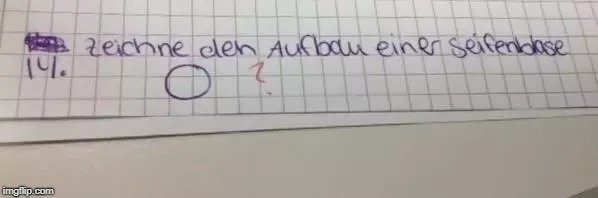 zeichne den Aufbau einer Seifenblase
14.
?
imgflip.com